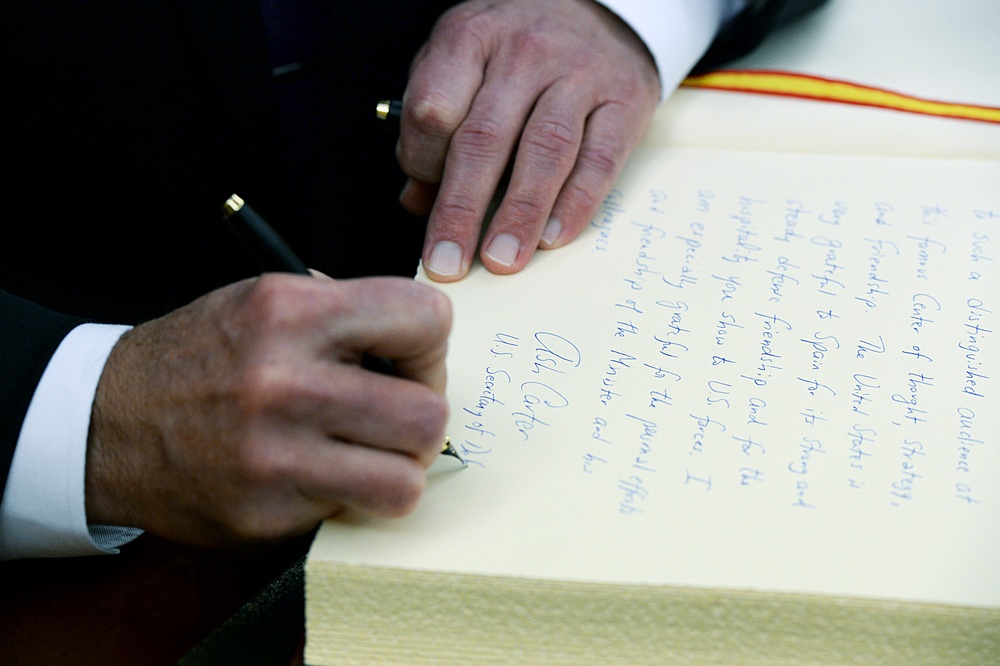 to such a distinguished audience at
this famous Center of thought, strategy,
and friendship. The United States is
very grateful to Spain for its strong and
steady defense friendship and for the
hospitality you show to US forces. I
am especially grateful for the personal efforts
and friendship of the Minister and his
colleagues
Ash Carter
U.S. Secretary of